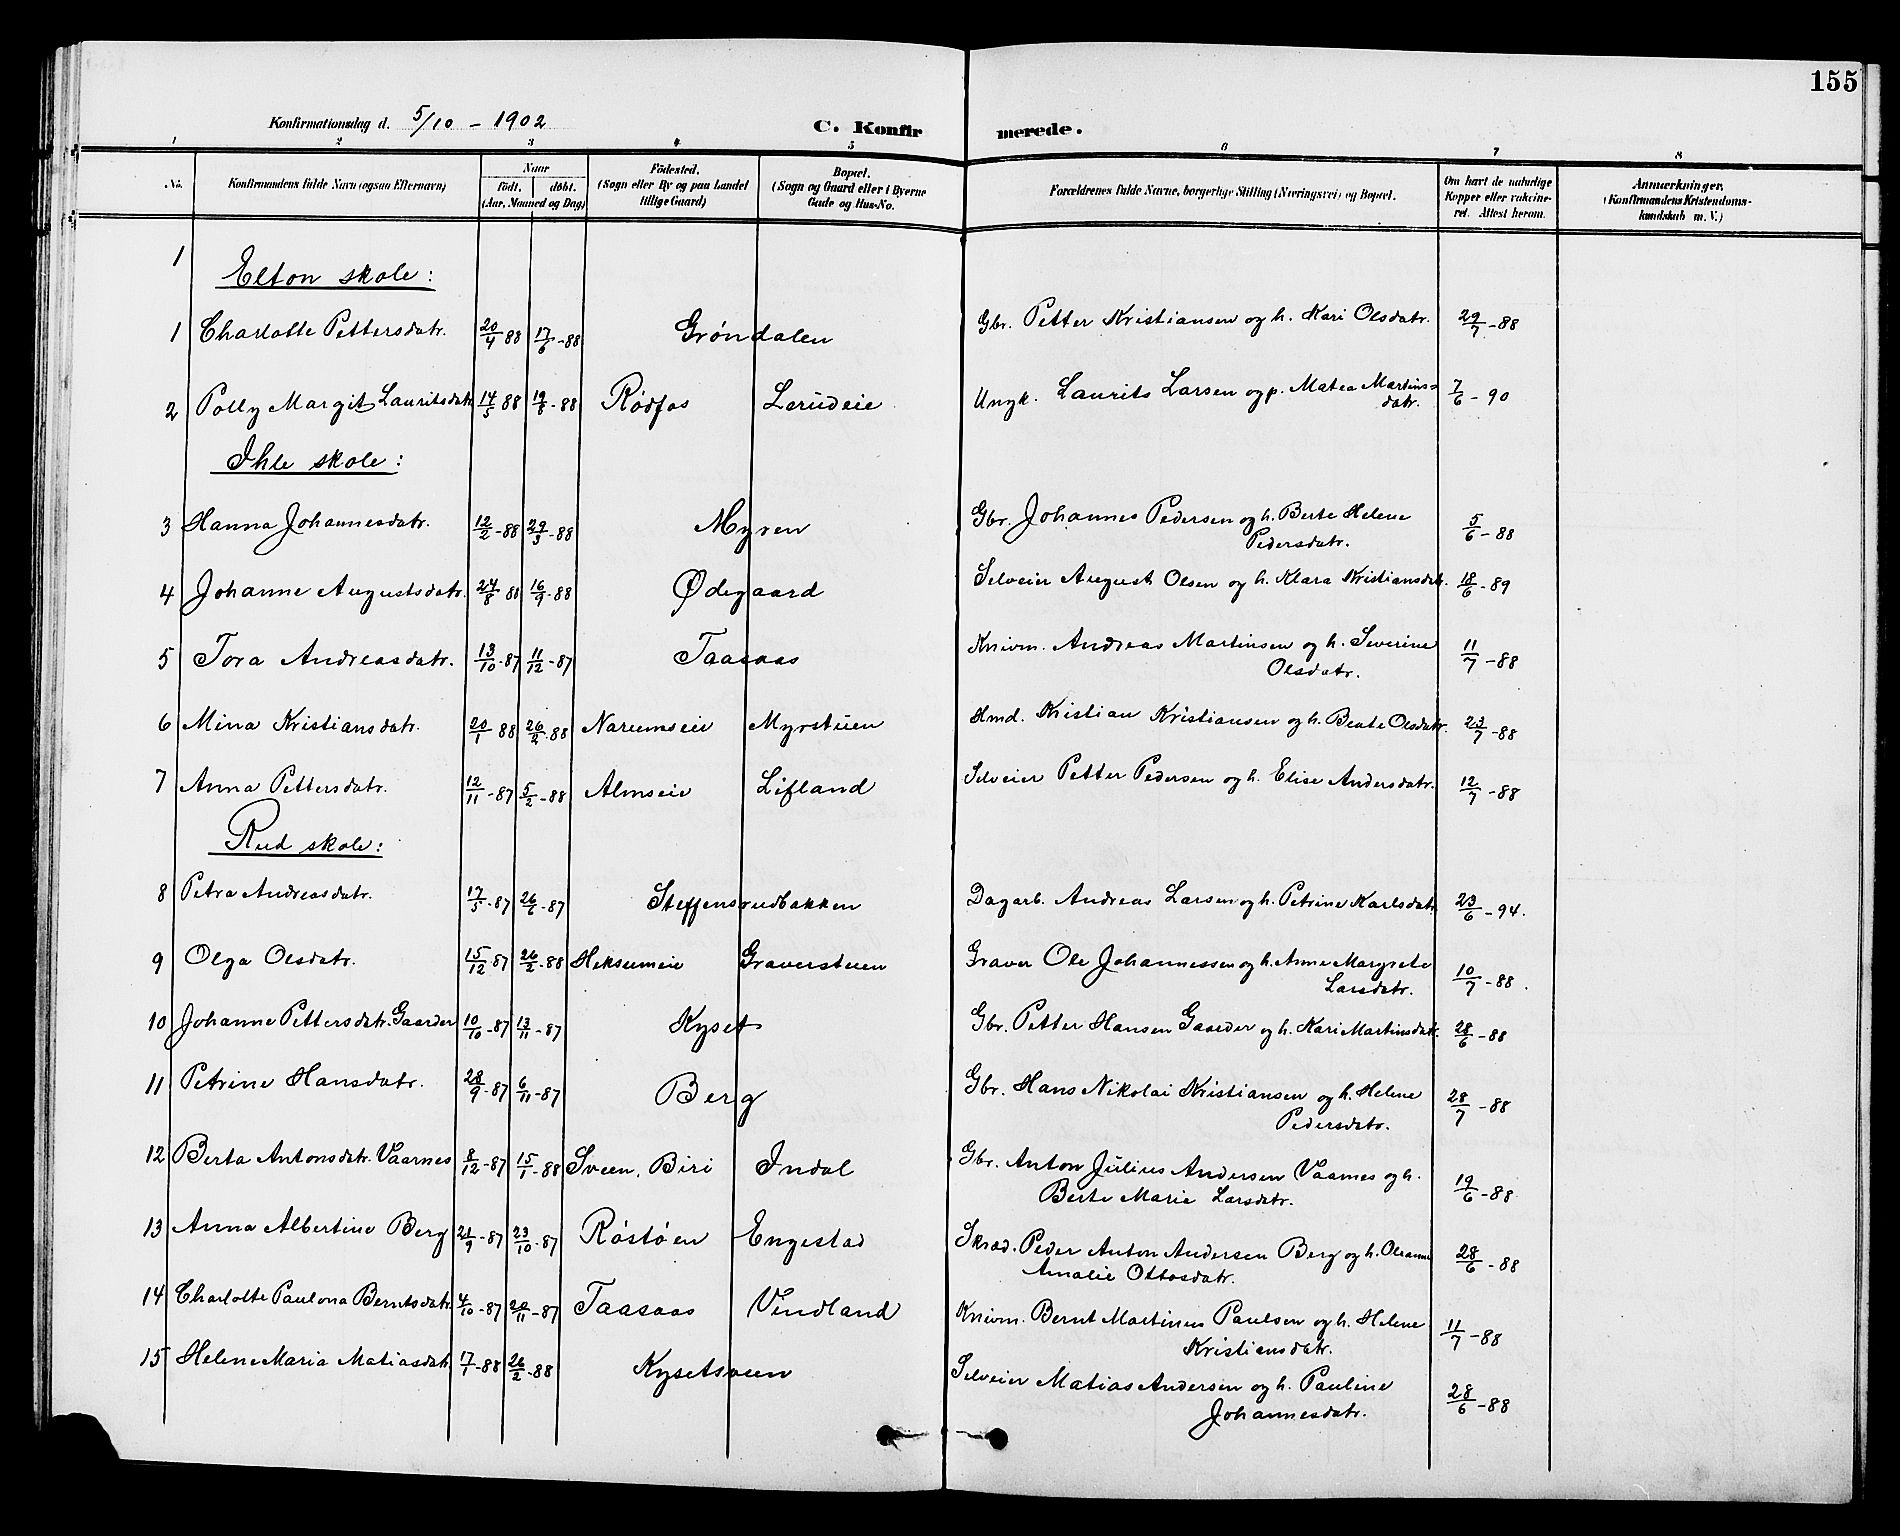 155
Konfirmationsdag d. 5/10 - 1902
C. Konfirmerede.
1 2 3 4 5 6 7 8
No. Konfirmandens fulde Navn (ogsaa Efternavn) Naar født. døbt. (Aar, Maaned og Dag) Födested, (Sogn eller By og paa Landet tillige Gaard) Bopæl. (Sogn og Gaard eller i Byerne Gade og Hus-No. Forældrenes fulde Navne, borgerlige Stilling (Næringsvei) og Bopæl. Om havt de naturlige Kopper eller vaccineret. Attest herom. Anmærkninger, (Konfirmandens Kristendomskundskab m. V.)
1
Elton skole:
1 Charlotte Pettersdatr. 20/4 88 17/6-88 Grøndalen Gbr. Petter Kristiansen og h. Kari Olsdatr. 29/7-88
2 Polly Margit Lauritsdatr 14/5 88 19/8-88 Rødfos Lerudeie Ungk. Laurits Larsen og p. Matea Martins=
datr. 7/6-90
Ihle skole:
3 Hanna Johannesdatr. 12/2-88 29/3-88 Myren Gbr. Johannes Pedersen og h. Berte Helene
Pedersdatr. 5/6-88
4 Johanne Augustsdatr. 24/8 88 16/9-88 Ødegaard Selveier August Olsen og h. Klara Kristiansdatr. 18/6-89
5 Tora Andreasdatr. 13/10-87 11/12-87 Taasaas Knivm. Andreas Martinsen og h. Severine
Olsdatr. 11/7-88
6 Mina Kristiansdatr. 20/1 88 26/2-88 Narumseie Myrstuen Hmd. Kristian Kristiansen og h. Beate Olsdatr. 23/7-88
7 Anna Pettersdatr. 12/11-87 5/2-88 Almseie Lifland Selveier Petter Pedersen og h. Elise Andersdatr. 12/7-88
Rud skole:
8 Petra Andreasdatr. 17/5-87 26/6-87 Steffensrudbakken Dagarb. Andreas Larsen og h. Petrine Karlsdatr. 23/6-94.
9 Olga Olsdatr. 15/12 87 26/2-88 Heksumeie Graverstuen Graver Ole Johannessen og h. Anne Margrete
Larsdatr. 10/7-88.
10 Johanne Pettersdatr. Gaarder 10/10-87 13/11-87 Kyset Gbr. Petter Hansen Gaarder og h. Kari Martinsdatr. 28/6-88
11 Petrine Hansdatr. 28/9-87 6/11-87 Berg Gbr. Hans Nikolai Kristiansen og h. Helene
Pedersdatr. 28/7-88
12 Berta Antonsdatr. Vaarnes 8/12-87 15/1-88 Sveen, Biri Indal Gbr. Anton Julius Andersen Vaarnes og h.
Berte Marie Larsdatr. 19/6-88
13 Anna Albertine Berg 21/9-87 23/10-87 Røstøen Engestad Skræd. Peder Anton Andersen Berg og h. Oleanne
Amalie Ottosdatr. 28/6-88
14 Charlotte Paulona Berntsdatr. 4/10-87 20/11-87 Taasaas Vindland Knivm. Bernt Martinus Paulsen og h. Helene
Kristiansdatr. 11/7-88
15 Helene Maria Matiasdatr. 17/1-88 26/2-88 Kysetsveen Selveier Matias Andersen og h. Pauline
Johannesdatr. 28/6-88